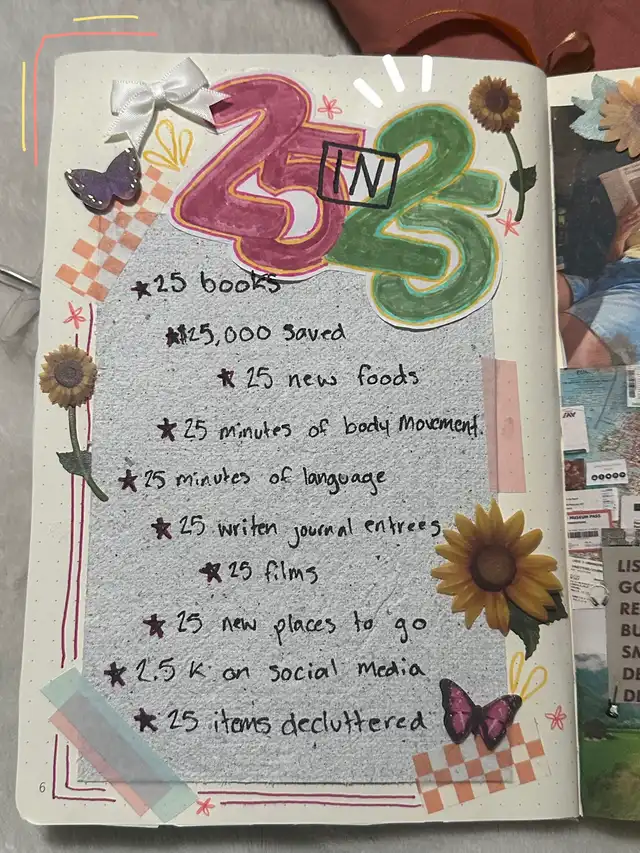 25 IN 25
★25 books
★$25,000 saved
★ 25 new foods
★ 25 minutes of body movement.
★ 25 minutes of language
★ 25 writen journal entrees
★ 25 films
★ 25 new places to go
★ 2.5 K on social media
★ 25 items decluttered
6
MUSEUM PASS
LIS
GO
RE
BU
SM
DE
/DE